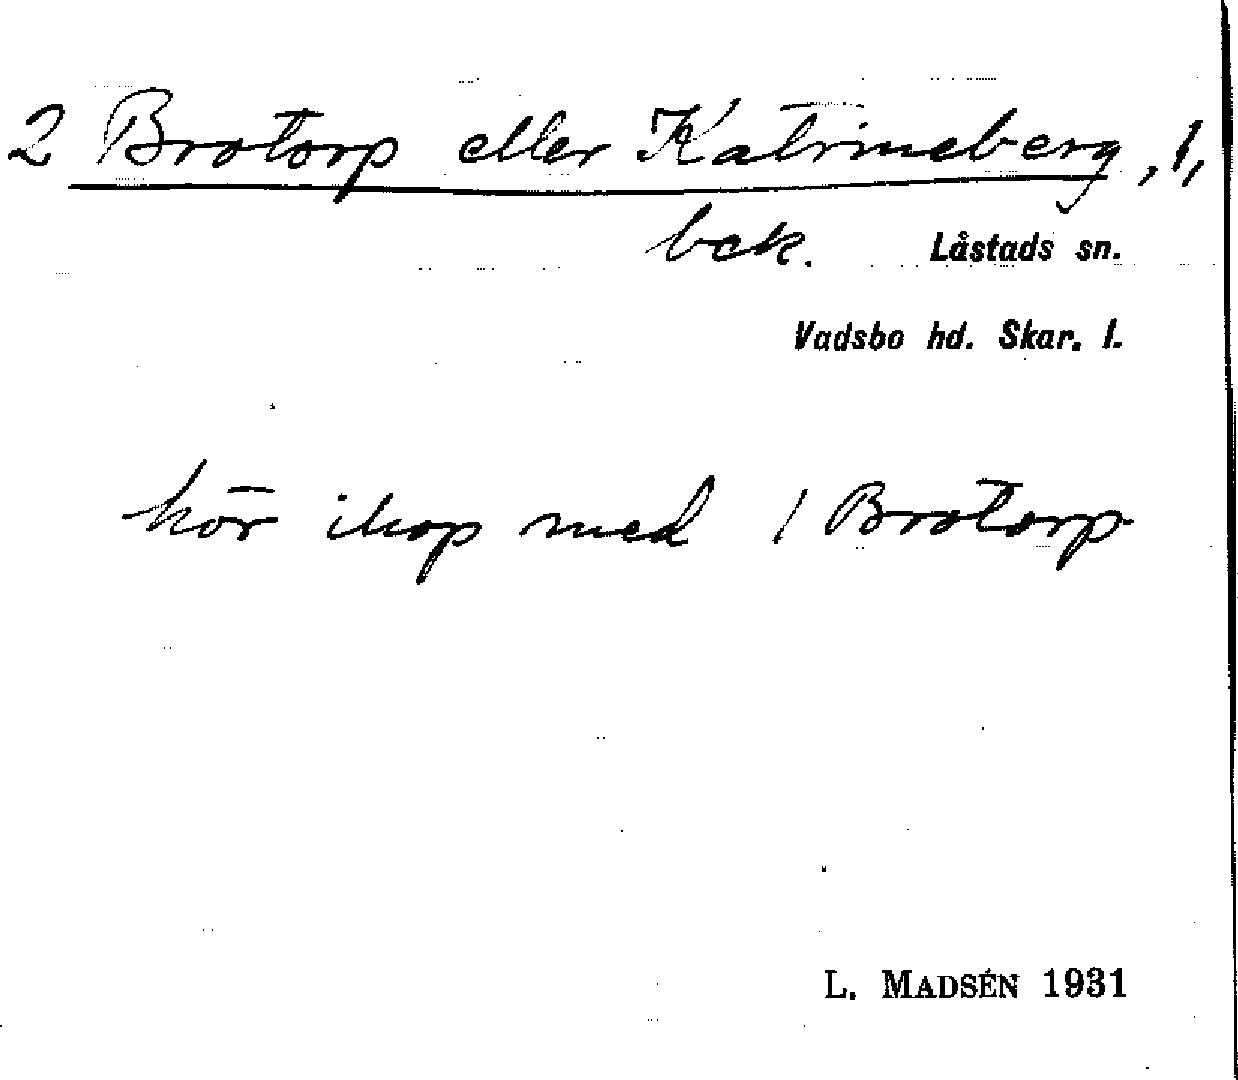 2 Brotorp eller Katrineberg, 1,
bck. Låstads sn.
Vadsbo hd. Skar. l.
hör ihop med 1 Brotorp
L. MADSÉN 1931